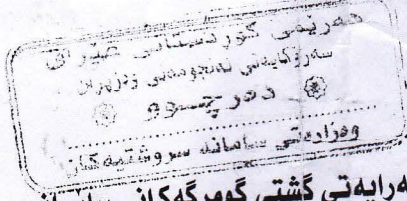 هەرێمی کوردستانی عێراق
سەرۆکایەتی ئەنجومەنی وەزیران
دەرچوو
وەزارەتی سامانە سروشتیەکان
ەرایەتی گشتی گومرگەکانی